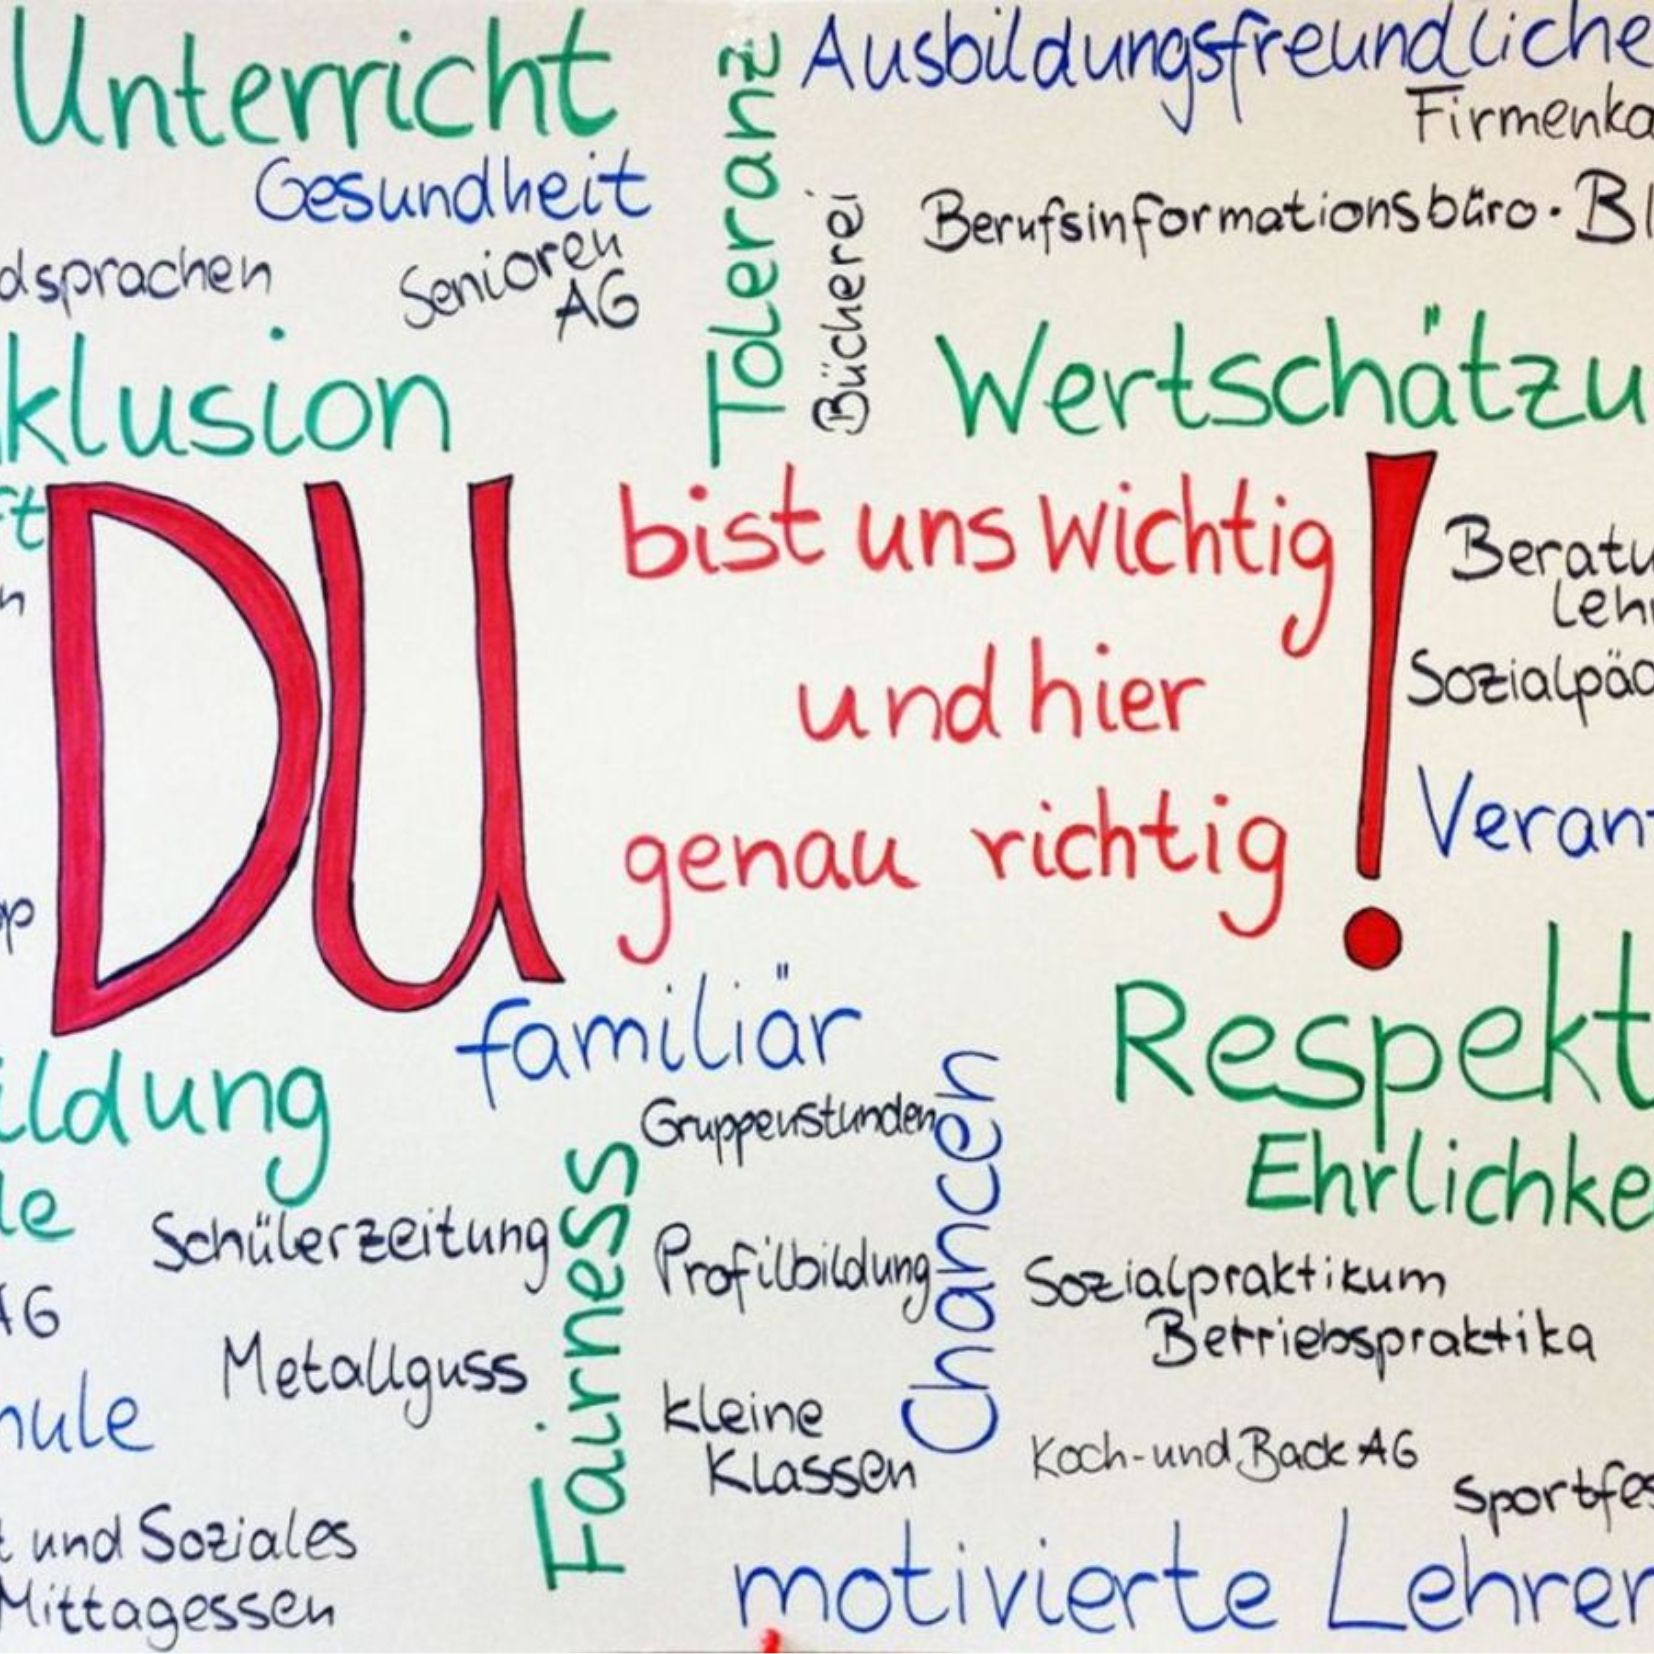 Unterricht
Toleranz
Ausbildungsfreundliche
Firmenka
Gesundheit
Bücherei
Berufsinformationsbüro · BI
dsprachen
Senioren
AG
klusion
Wertschätzu
ft
DU
bist uns wichtig
!
Beratu
Leh
n
und hier
Sozialpäd
genau richtig
Verant
op
familiär
Respekt
ildung
Gruppenstunden
Chancen
Ehrlichke
le
Schülerzeitung
Fairness
Profilbildung
Sozialpraktikum
Betriebspraktika
AG
Metallguss
hule
kleine
Klassen
Koch- und Back AG
Sportfes
t und Soziales
Mittagessen
motivierte Lehrer